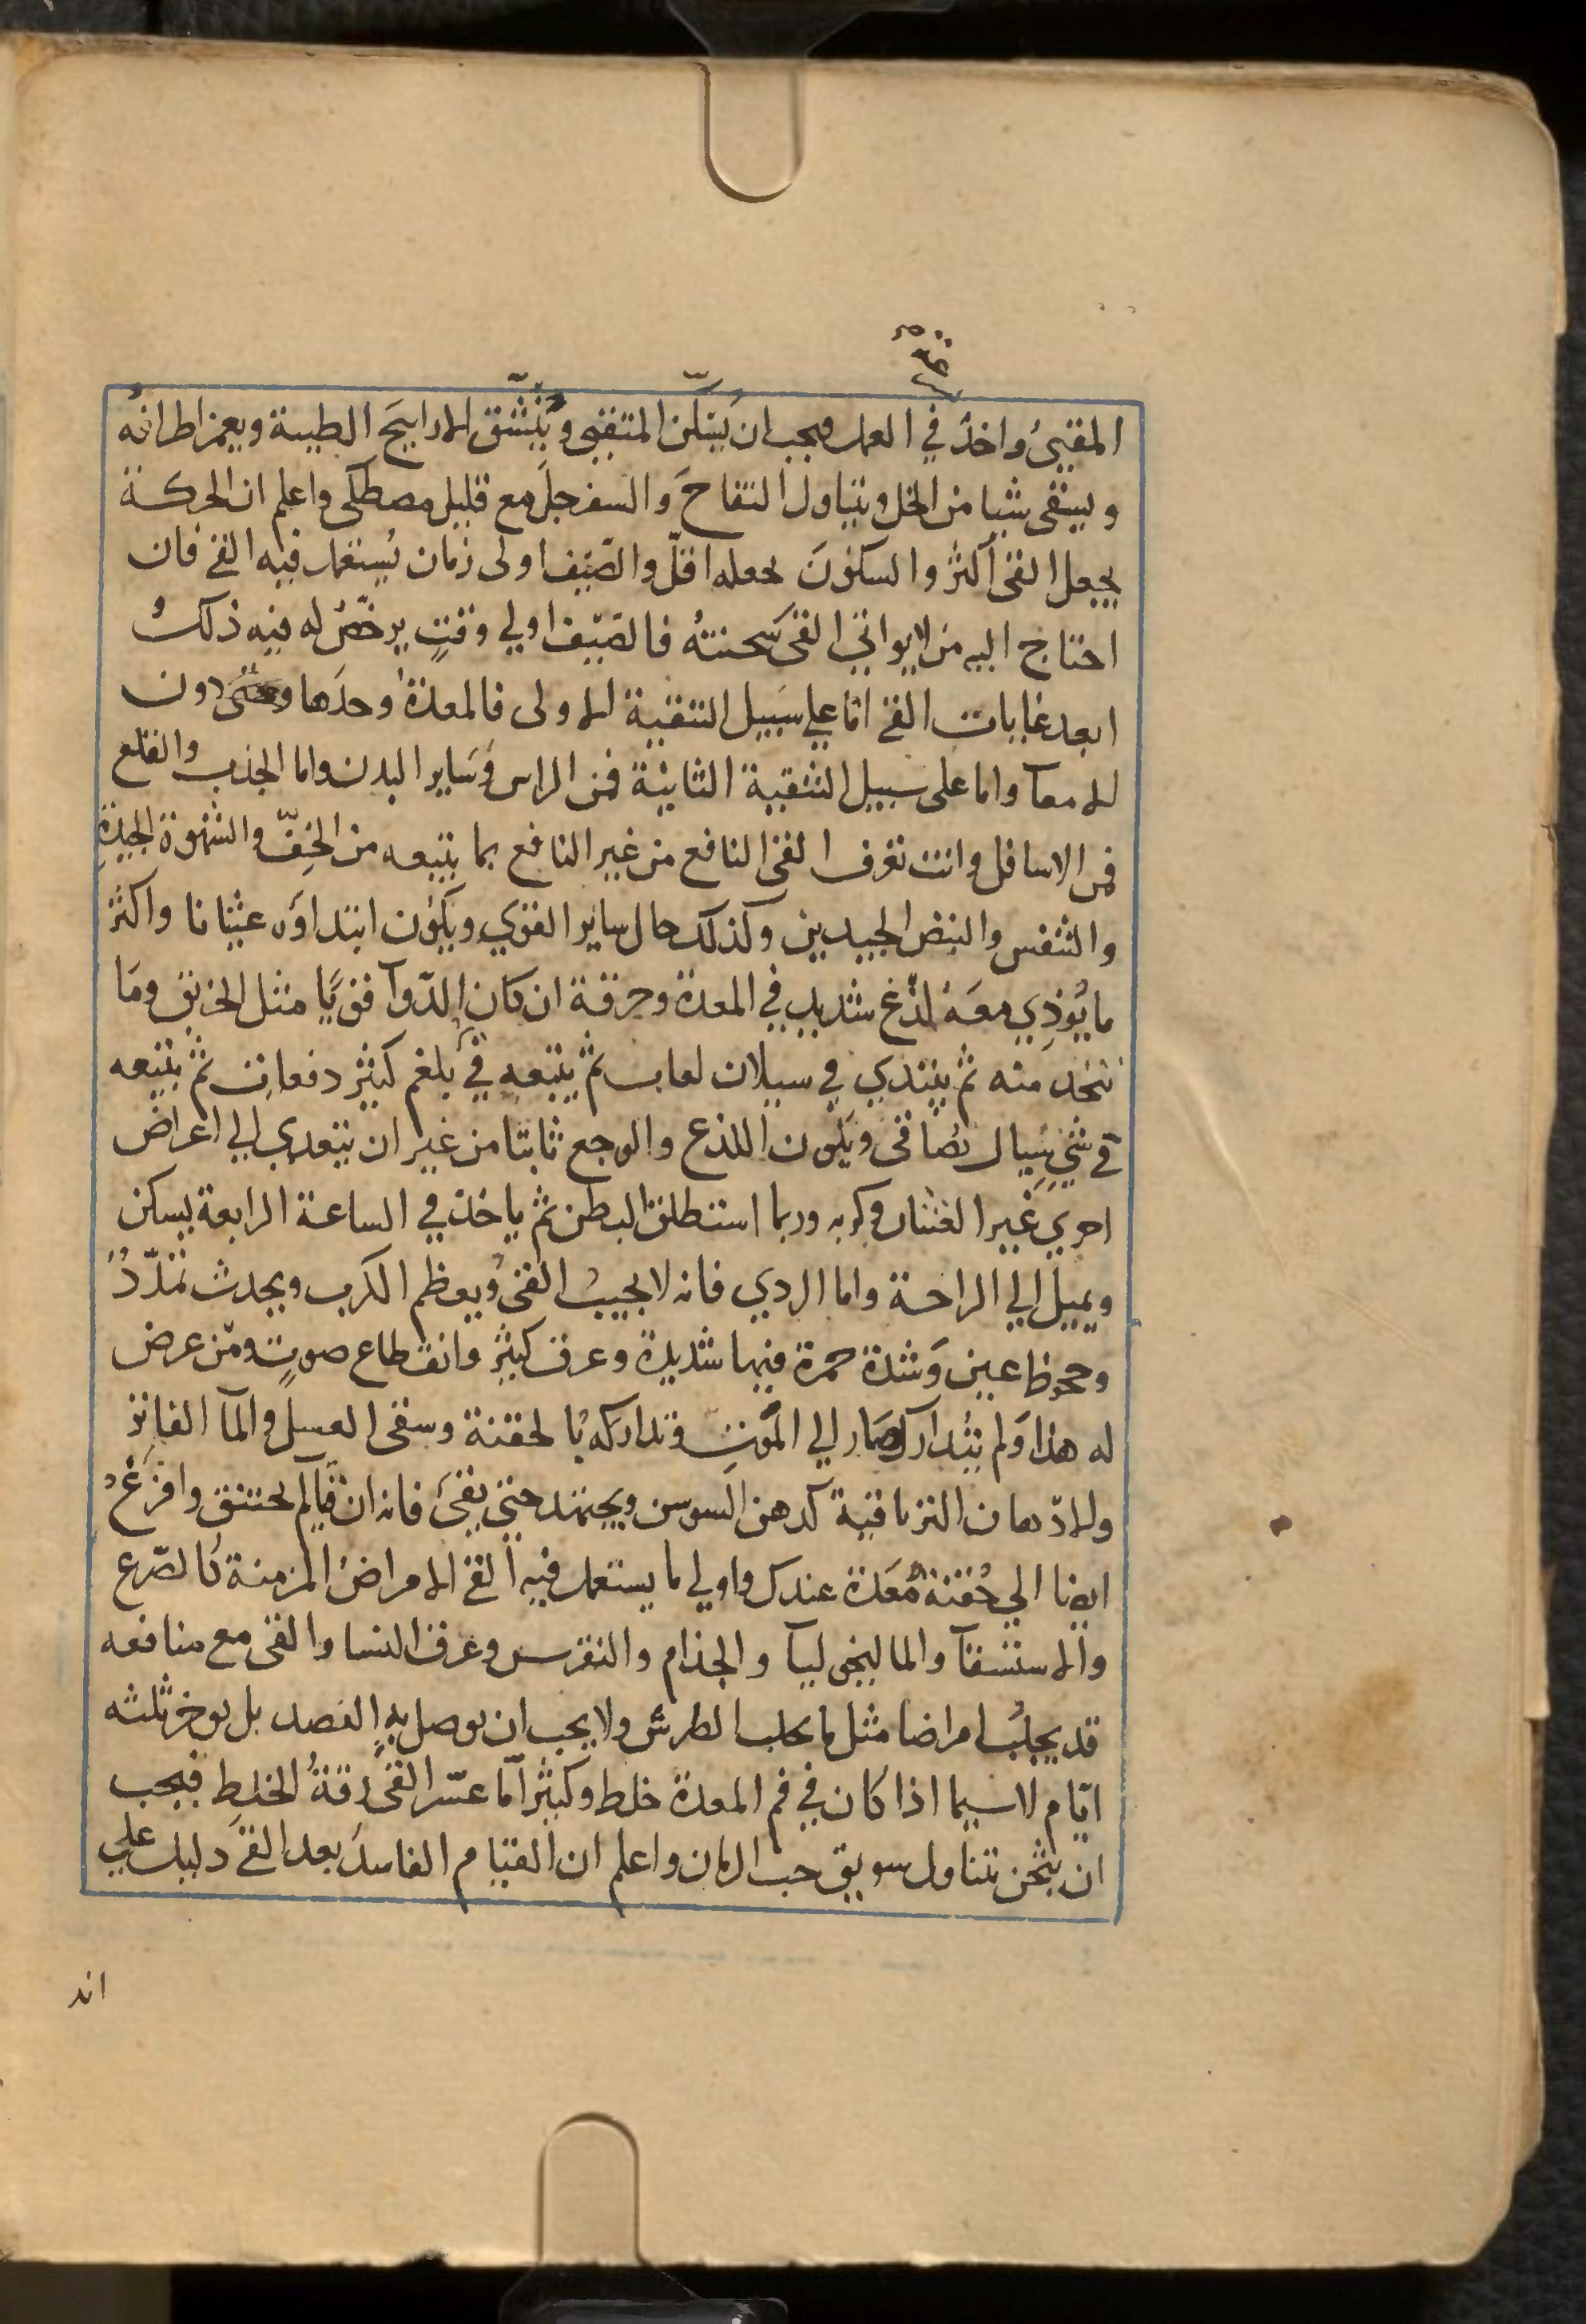 المقيئ واخذ في العمل فيجب ان يسكن المتقيئ وينشق الاراييح الطيبة ويغمز اطرافه
ويسقى شيا من الخل ويتناول التفاح والسفرجل مع قليل مصطكى واعلم ان الحركة
يجعل القئ اكثر والسكون يجعله اقل والصيف اولى زمان يستعمل فيه القئ فان
احتاج اليه من لا يواتي القئ سحنته فالصيف اولي وقت يرخص له فيه ذلك
ابعد غايات القئ اما علي سبيل التنقية الاولى فالمعدة وحدها دون
الامعآ واما على سبيل التنقية الثانية فمن الراس وساير البدن واما الجذب والقلع
فمن الاسافل وانت تعرف القئ النافع من غير النافع بما يتبعه من الخف والشهوة الجيدة
والتنفس والنبض الجيدين وكذلك حال ساير القوي ويكون ابتداؤه غثيانا واكثر
ما يؤذي معه لذغ شديد في المعدة وحرقة ان كان الدوآ قويا مثل الخربق وما
يتخذ منه ثم يبتدي في سيلان لعاب ثم يتبعه قئ بلغم كثير دفعات ثم يتبعه
قئ شئ سيال صافى ويكون اللذع والوجع ثابتا من غير ان يتعدي الي اعراض
اخري غير الغثيان وكربه وربما استطلق البطن ثم ياخذ في الساعة الرابعة يسكن
ويميل الي الراحة واما الردي فانه لا يجيب القئ ويعظم الكرب ويحدث تمدد
وجحوظ عين وشدة حمرة فيها شديدة وعرق كثير وانقطاع صوت ومن عرض
له هذا ولم يتدارك صار الي الموت وتداركه بالحقنة وسقى العسل والمآ الفاتر
والادهان الترياقية كدهن السوسن ويجتهد حتي يقئ فانه ان قيا لم يختنق وافزع
ايضا الي حقنة معدة عندك واولي ما يستعمل فيه القئ الامراض المزمنة كالصرع
والاستسقآ والماليخوليآ والجذام والنقرس وعرق النسا والقئ مع منافعه
قد يجلب امراضا مثل ما يجلب الطرش ولا يجب ان يوصل به الفصد بل يوخر ثلثه
ايام لاسيما اذا كان في فم المعدة خلط وكثيرا ما عسر القئ رقة الخلط فيجب
ان يثخن بتناول سويق حب الرمان واعلم ان القيام الفاسد بعد القئ دليل علي
اند